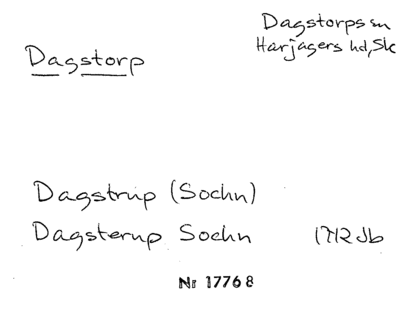 Dagstorps sn
Harjagers hd, Sk
Dagstorp
Dagstrup (Sochn)
Dagsterup Sochn 1712 Jb
Nr 17768